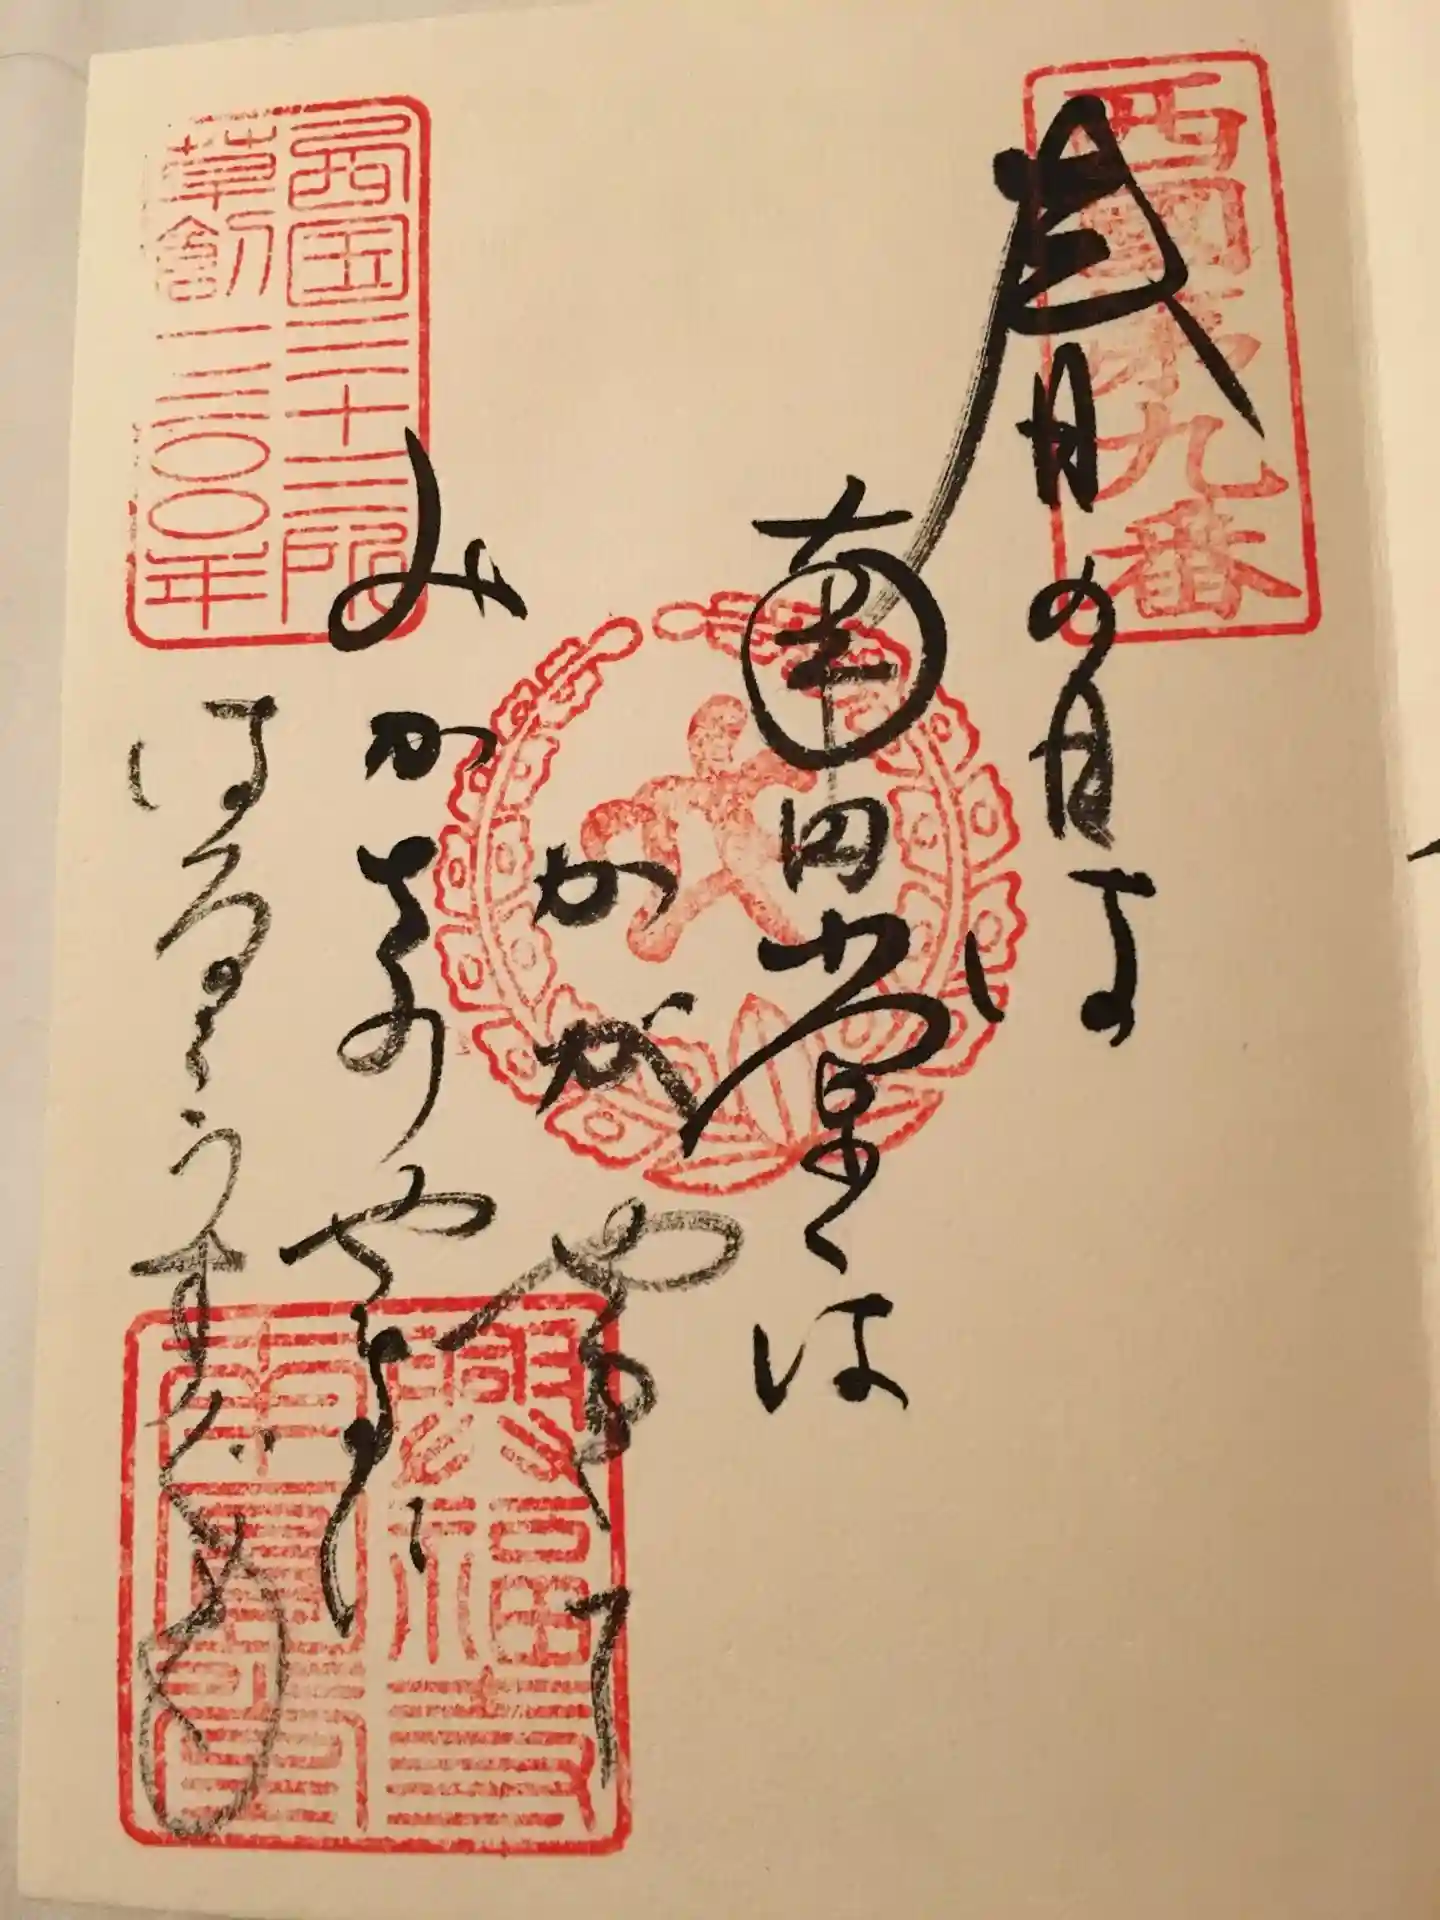 西國第九番
春日の月は
南円堂
かがやきて
みかさのやまに
はるるうす
西国三十三所
草創一三〇〇年
興福寺
南圓堂